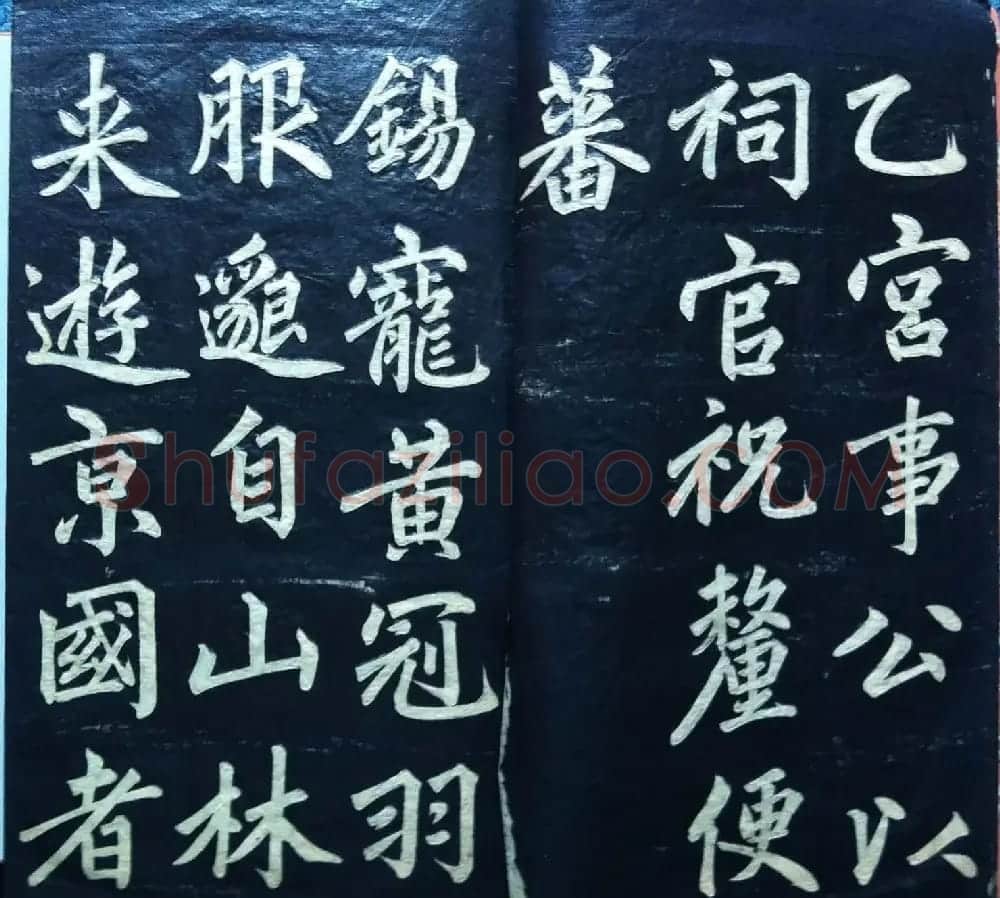 乙宮事公以
祠官祝釐便
蕃
錫寵黃冠羽
服邈自山林
来遊京國者
Shufaziliao.COM